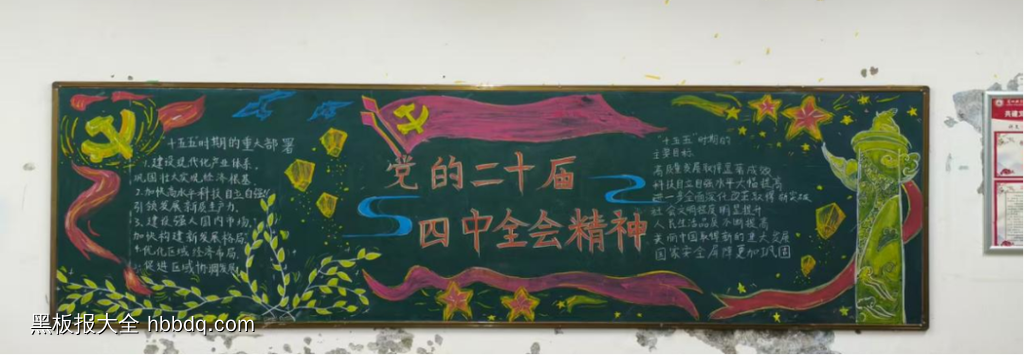 党的二十届
四中全会精神
十五五时期的重大部署
1.建设现代化产业体系,
巩固壮大实现经济根基.
2.加快高水平科技自立自强
引领发展新质生产力.
3.建设强大国内市场,
加快构建新发展格局.
4.优化区域经济布局,
促进区域协调发展
"十五五"时期的
主要目标
高质量发展取得显著成效
科技自立自强水平大幅提高
进一步全面深化改革取得新突破
社会文明程度明显提升
人民生活品质不断提高
美丽中国取得新的重大进展
国家安全屏障更加巩固
黑板报大全 hbbdq.com